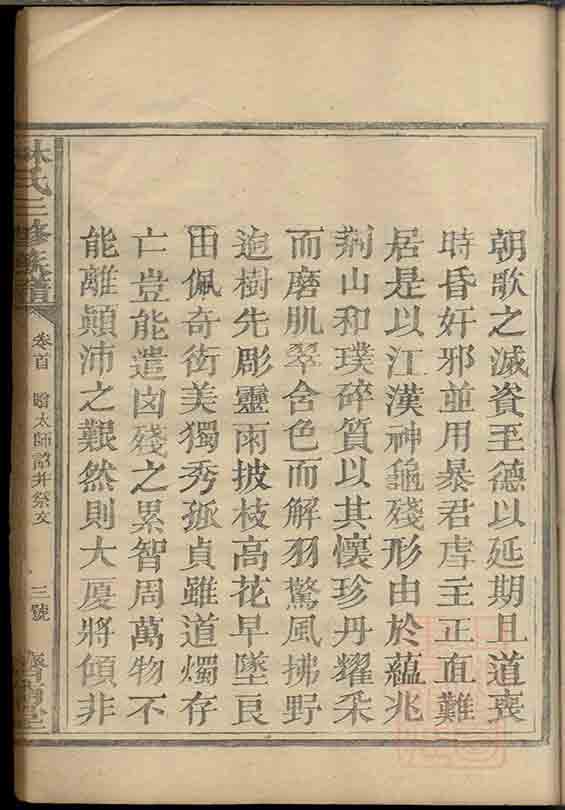 朝歌之滅資至德以延期且道喪
時昏奸邪並用暴君虐主正直難
居是以江漢神龜殘形由於蘊兆
荊山和璞碎質以其懷珍丹耀采
而磨肌翠含色而解羽驚風拂野
迥樹先彫靈雨披枝高花早墜良
由佩奇衒美獨秀孤貞雖道燭存
亡豈能遣囟殘之累智周萬物不
能離顛沛之艱然則大廈將傾非
林氏三修族譜
卷首
贈太師詔并祭文
三號